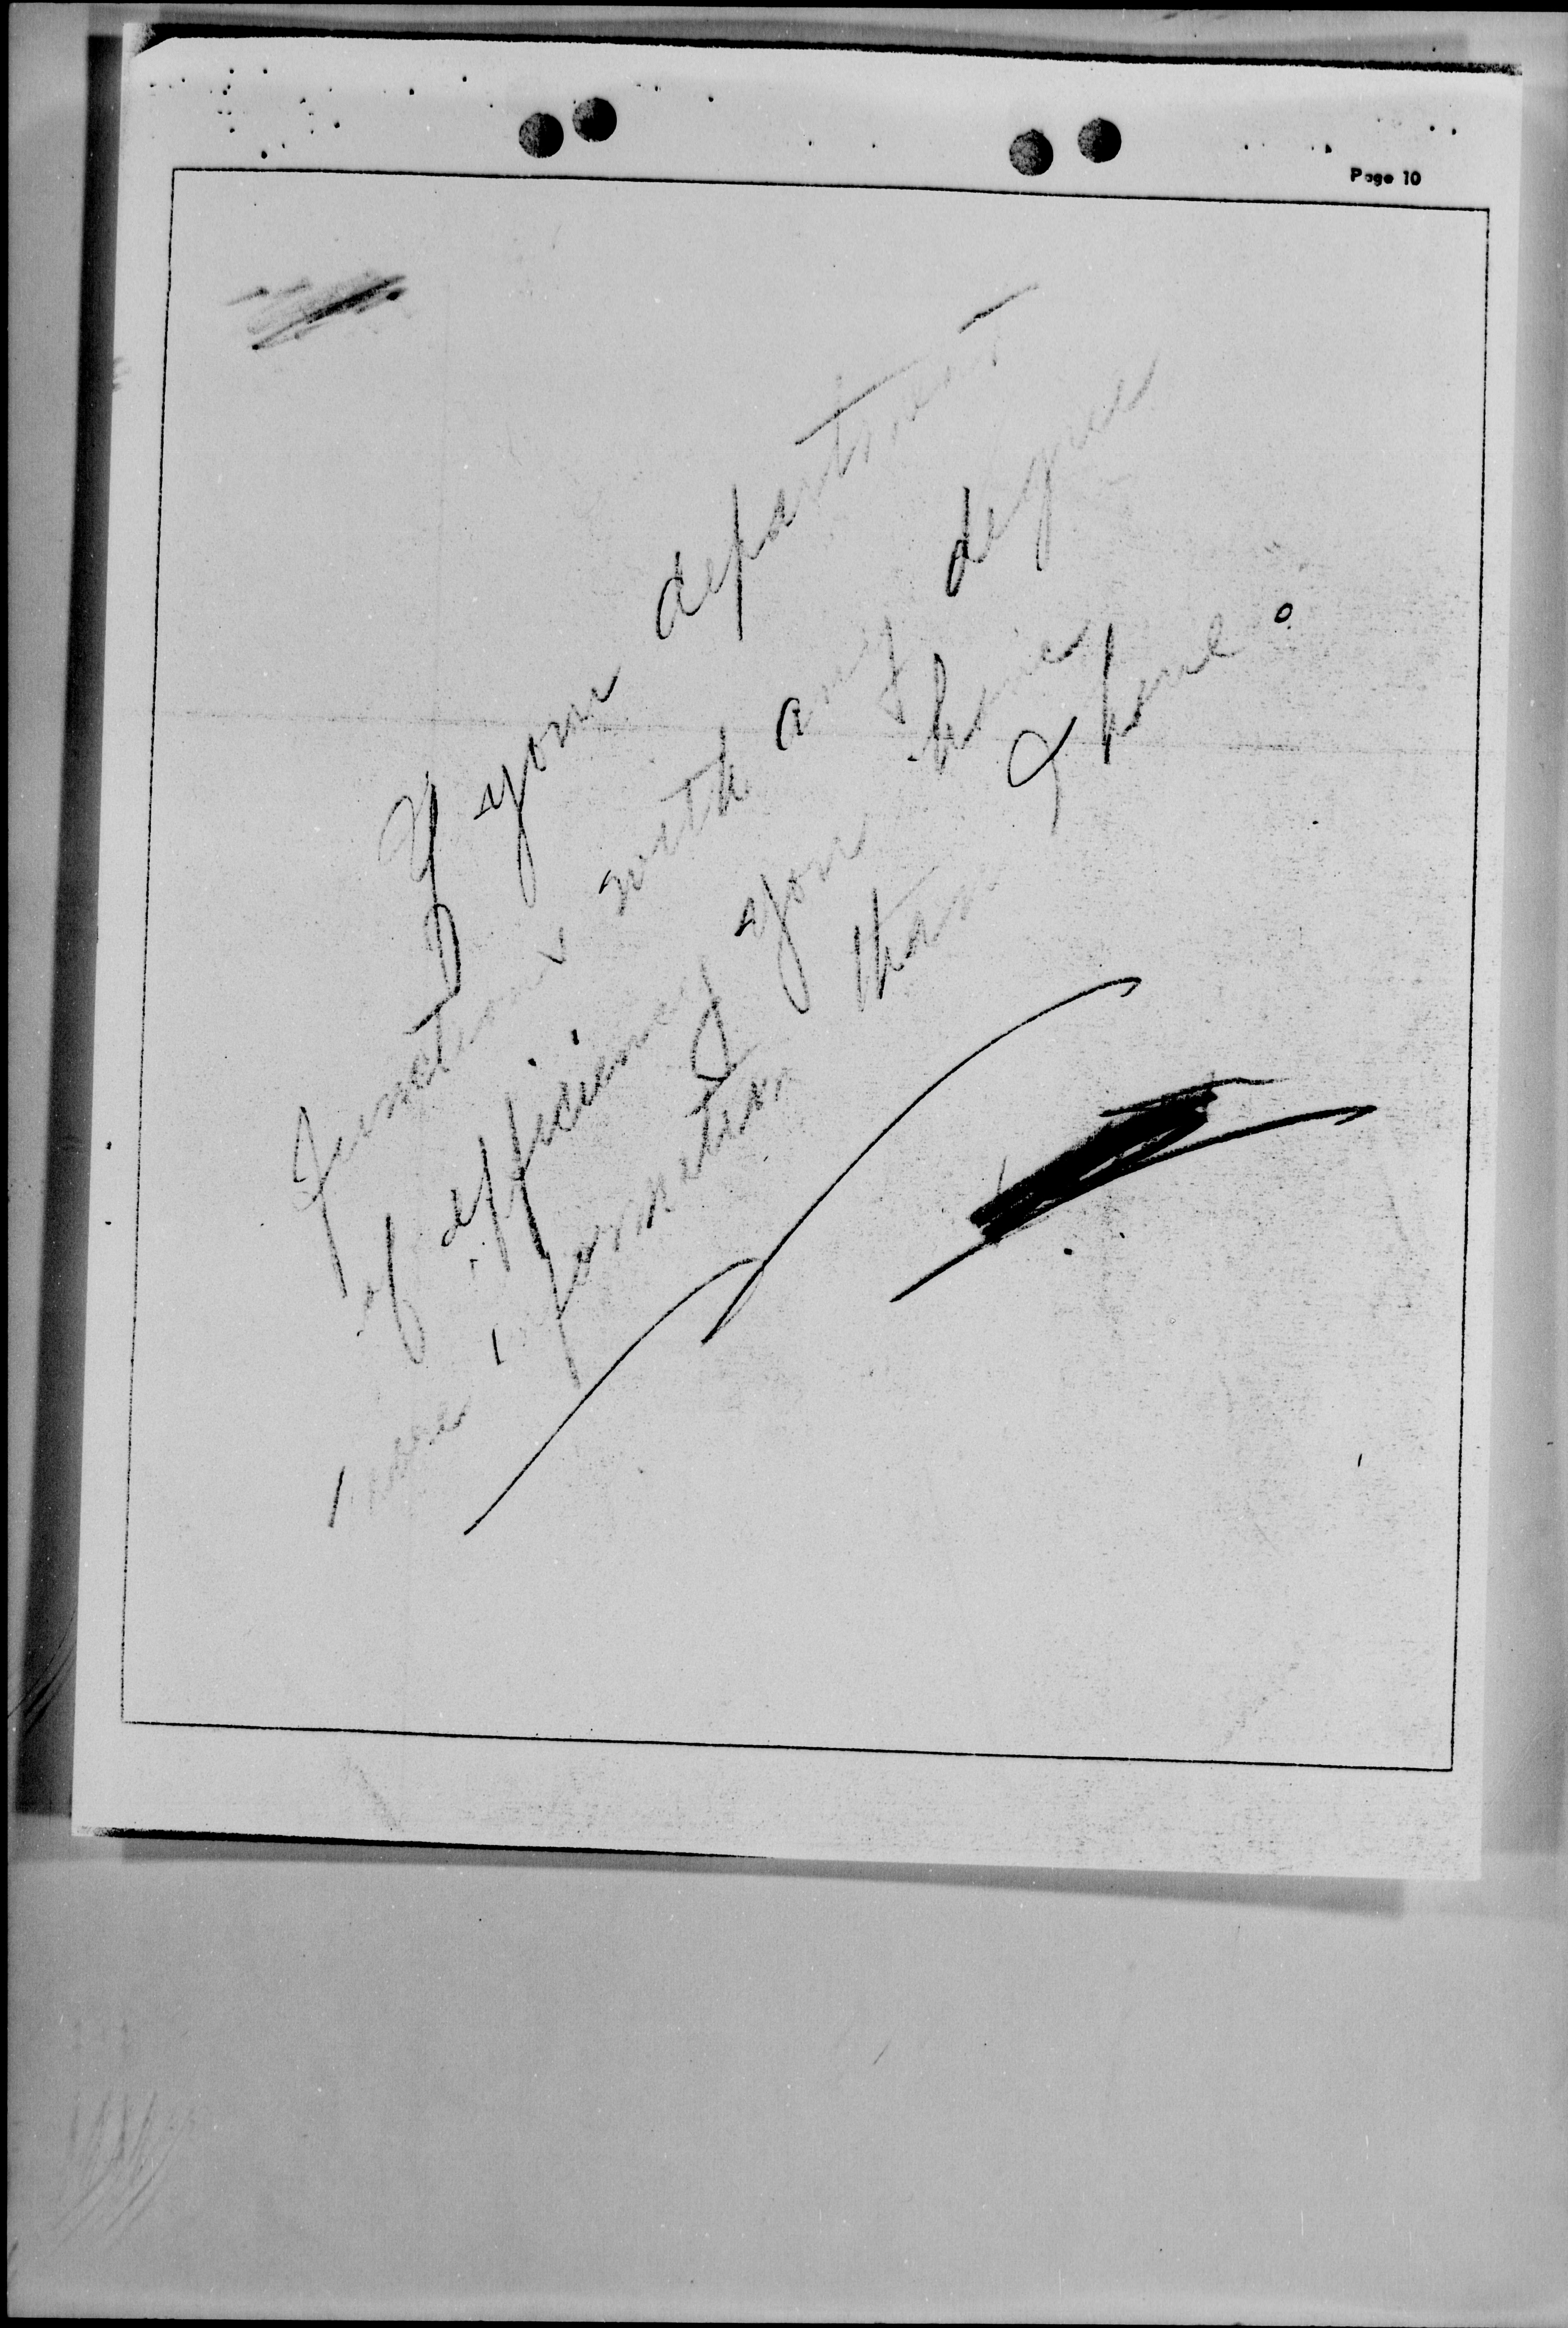 Page 10
If your department
functions with any degree
of efficiency you have
more information than
I have.